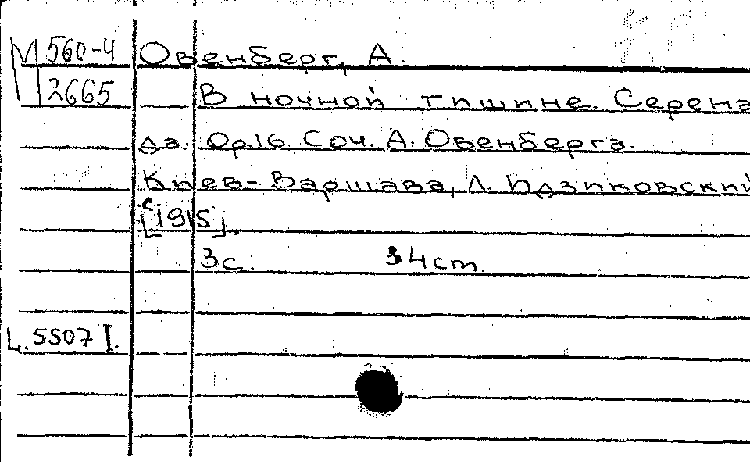 М 560-4 Овенберг, А.
2665 В ночной тишине. Серена
да. Op.16. Соч. А. Овенберга.
Киев-Варшава, Л. Идзиковский
[1915].
3с. 34cm.
L. 5507 I.